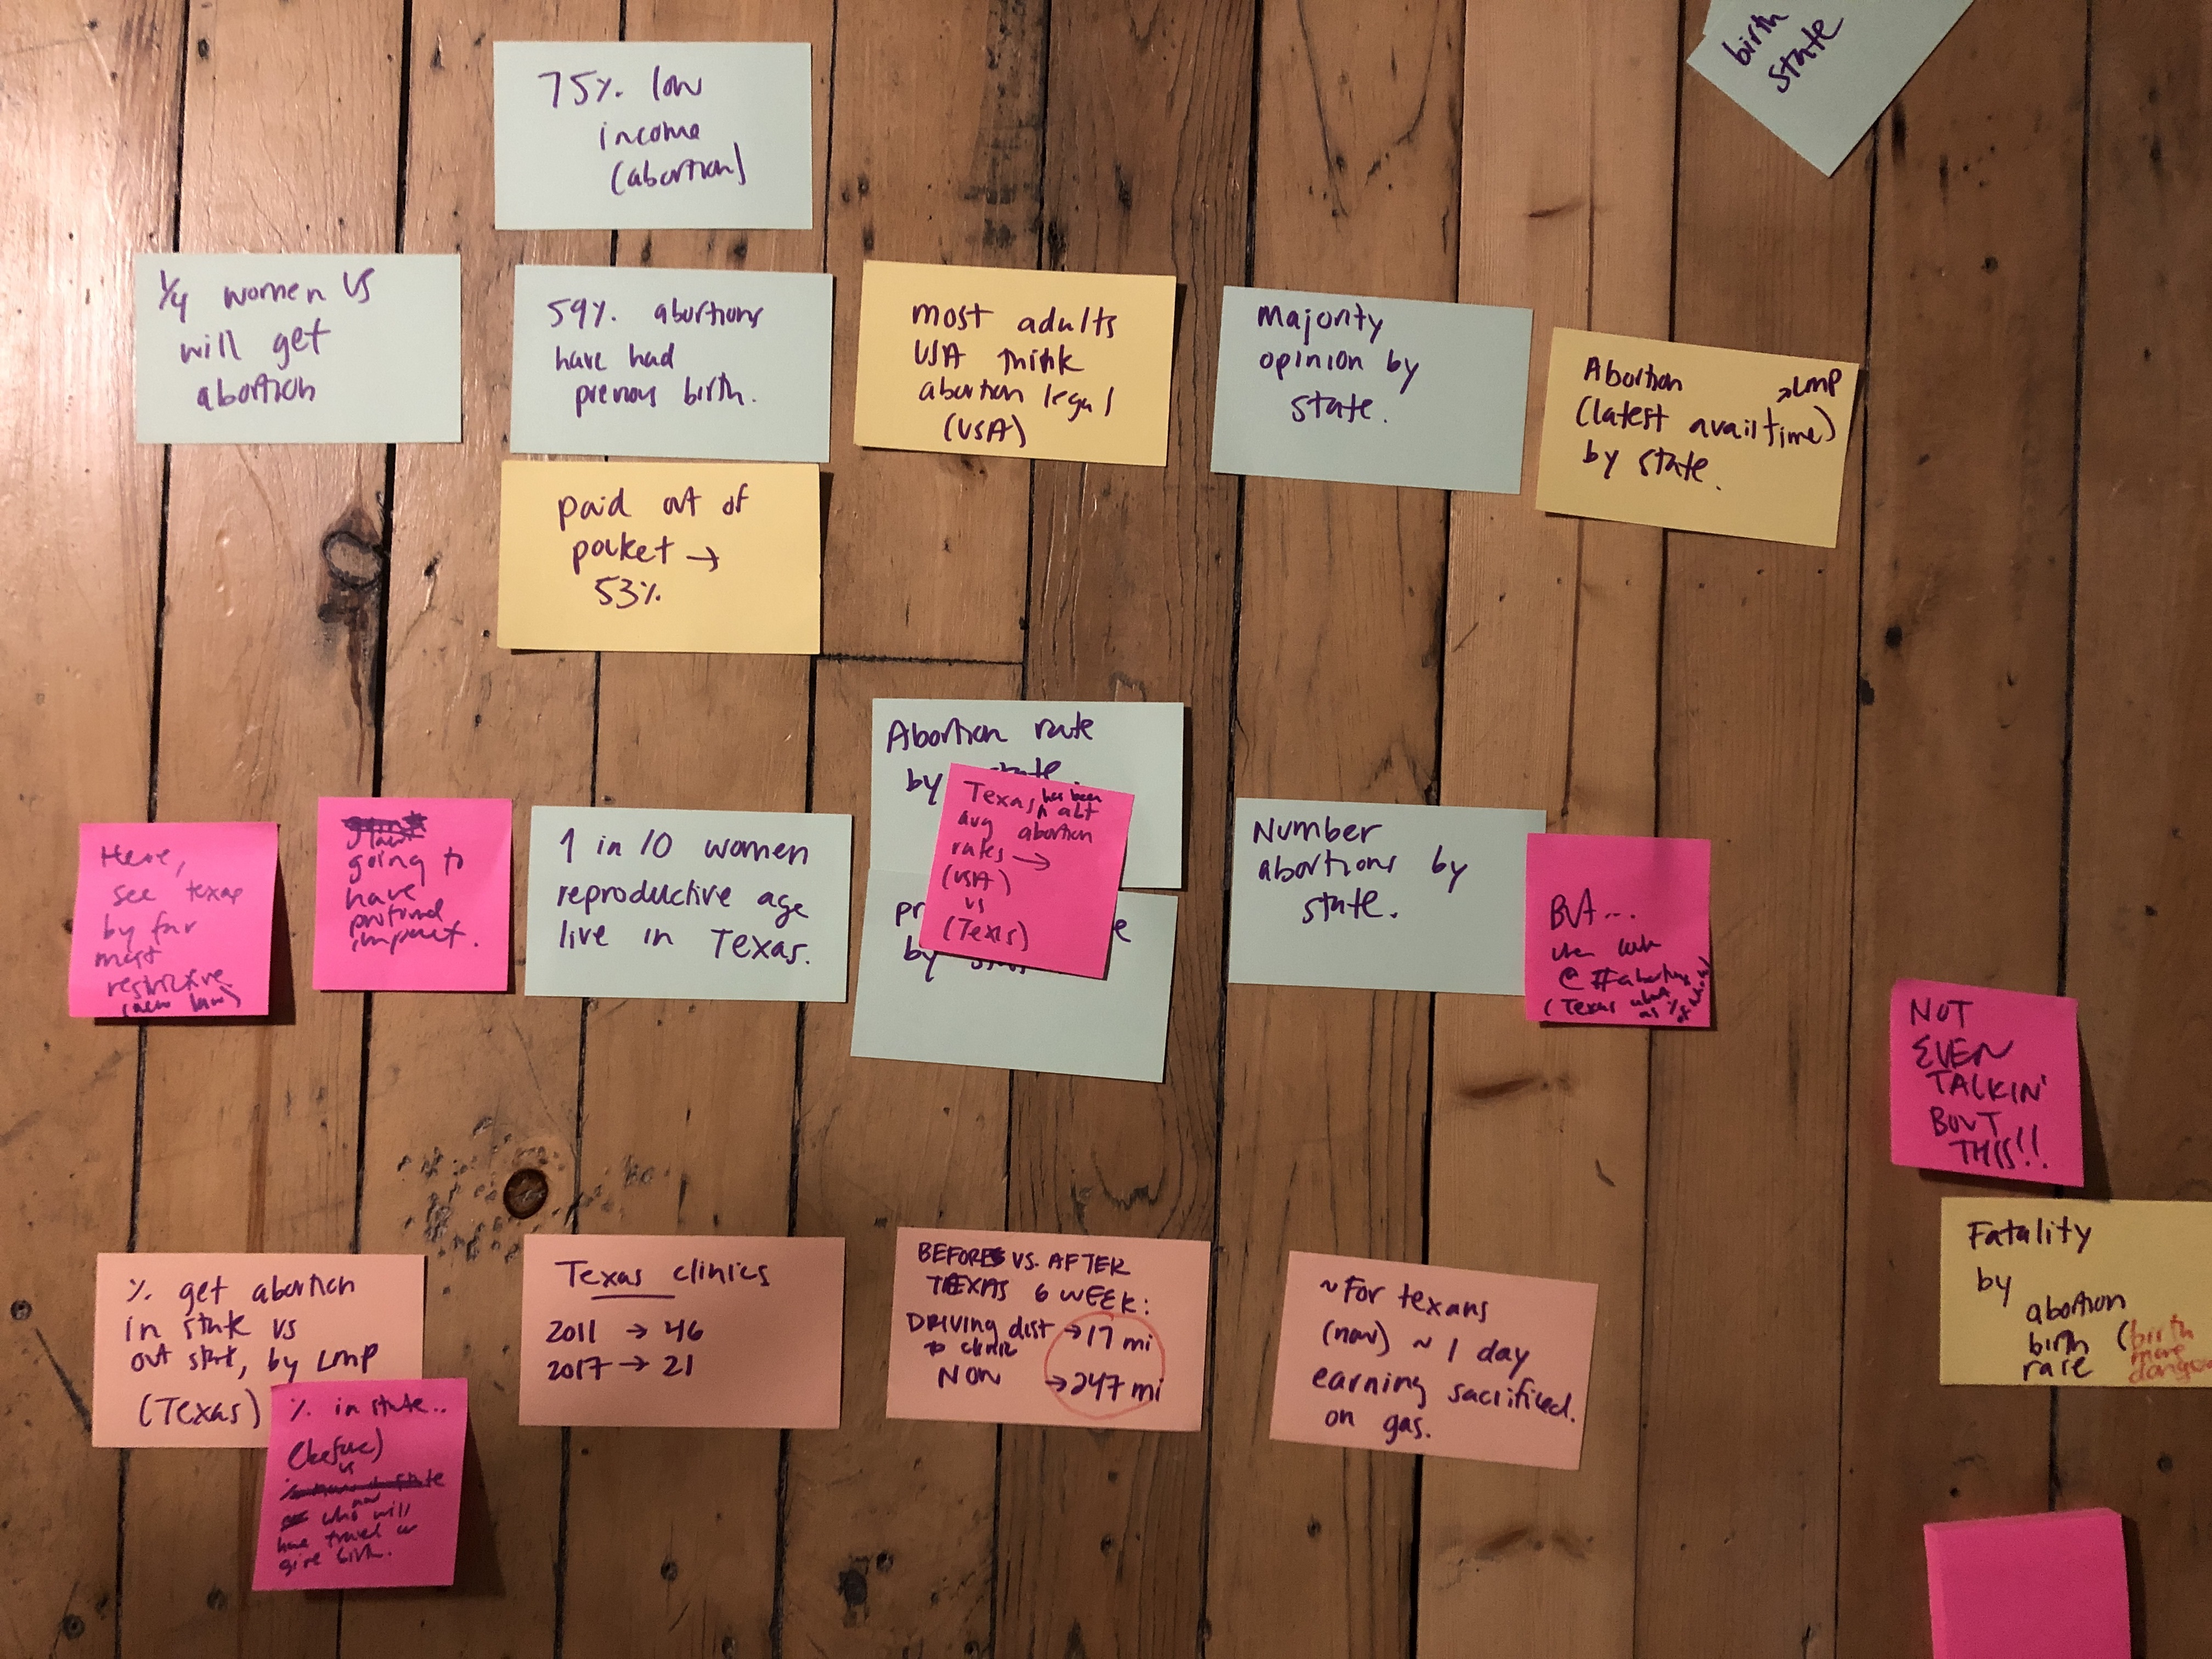 birth
state
75% low
income
(abortion)
1/4 women US
will get
abortion
59% abortions
have had
previous birth.
most adults
USA think
abortion legal
(USA)
Majority
opinion by
state.
Abortion →LMP
(latest avail time)
by state.
paid out of
pocket →
53%
Abortion rate
by state
Texas has been abt
avg abortion
rates →
(USA)
vs
(Texas)
pr e
by
Here,
see texas
by far
most
restrictive
(new law)
going to
have
profound
impact.
1 in 10 women
reproductive age
live in Texas.
Number
abortions by
state.
BUT...
when look
@ # abortions
(Texas abort
as % of
NOT
EVEN
TALKIN'
BOUT
THIS!!
% get abortion
in state vs
out state, by LMP
(Texas)
% in state..
(before)
vs
now
who will
have travel or
give birth.
Texas clinics
2011 → 46
2017 → 21
BEFORE VS. AFTER
TEXAS 6 WEEK:
DRIVING dist → 17 mi
to clinic
NOW → 247 mi
~For texans
(now) ~ 1 day
earning sacrificed
on gas.
Fatality
by
abortion
birth (birth
rare more